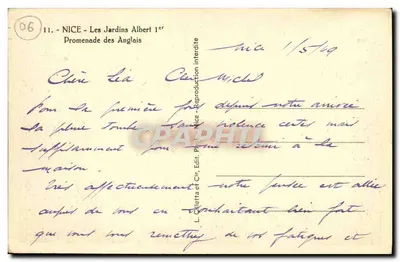 06
11. - NICE - Les Jardins Albert 1er
Promenade des Anglais
Nice 1/5/49
Chère Léa, Cher Michel
Pour la première fois depuis notre arrivée
la pluie tombe sans violence certes mais
suffisamment pour nous retenir à la
maison.
Très affectueusement notre pensée est allée
auprès de vous en souhaitant bien fort
que vous vous remettiez de vos fatigues et
L. Gilletta et Cie, Edit. Reproduction interdite
CPARAMA